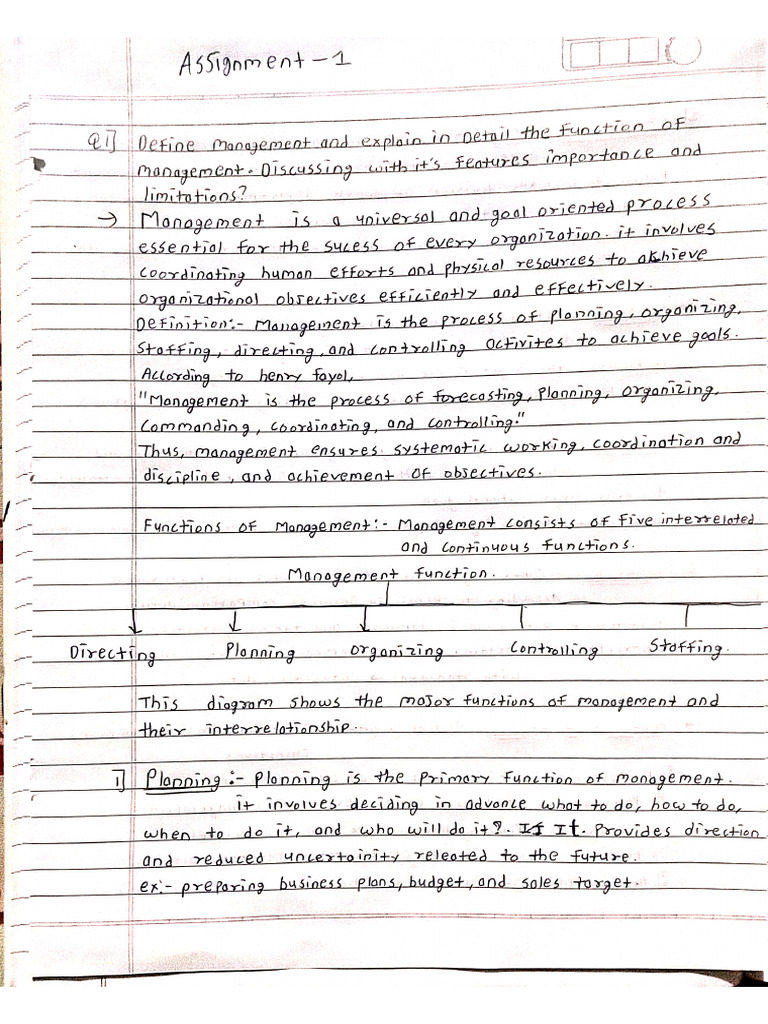 Assignment - 1
Q1] Define management and explain in Detail the function of
management. Discussing with it's features importance and
limitations?
→ Management is a universal and goal oriented process
essential for the sucess of every organization. it involves
coordinating human efforts and physical resources to achieve
organizational objectives efficiently and effectively.
Definition:- Management is the process of planning, organizing,
Staffing, directing, and controlling activites to achieve goals.
According to henry fayol,
"Management is the process of forecasting, planning, organizing,
Commanding, coordinating, and controlling."
Thus, management ensures systematic working, coordination and
discipline, and achievement of objectives.
Functions of Management:- Management consists of five interrelated
and continuous functions.
Management function.
Directing Planning organizing Controlling Staffing.
This diagram shows the major functions of management and
their interrelationship.
1] Planning :- Planning is the primary function of management.
it involves deciding in advance what to do, how to do,
when to do it, and who will do it?. It. Provides direction
and reduced uncertainity releated to the future.
ex:- preparing business plans, budget, and sales target.